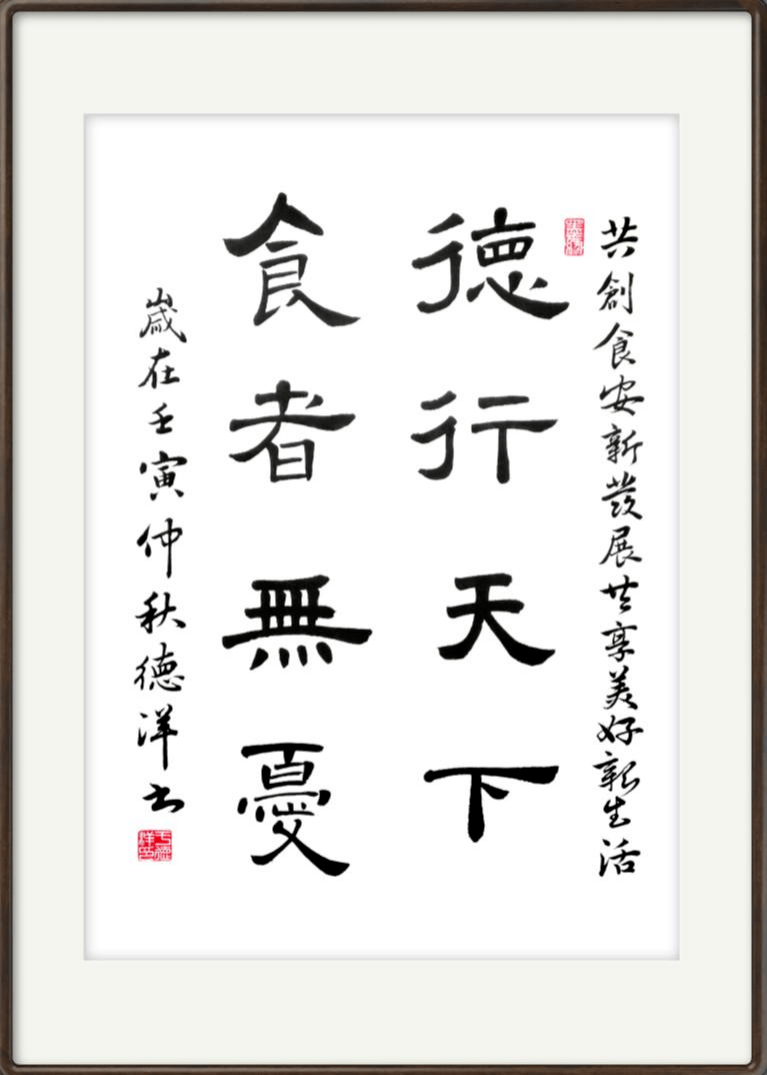 共創食安新發展共享美好新生活
德行天下
食者無憂
歲在壬寅仲秋德洋书